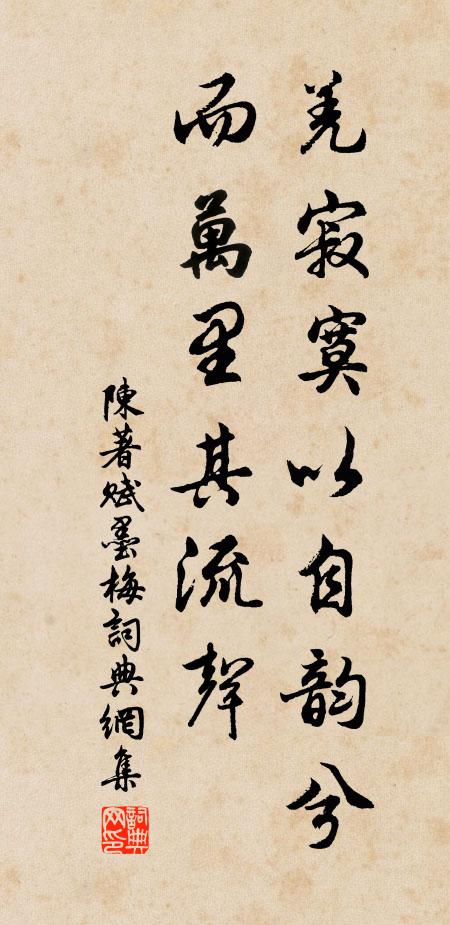 羌寂寞以自韵兮
而萬里其流聲
陳著賦墨梅詞典網集
詞典网印